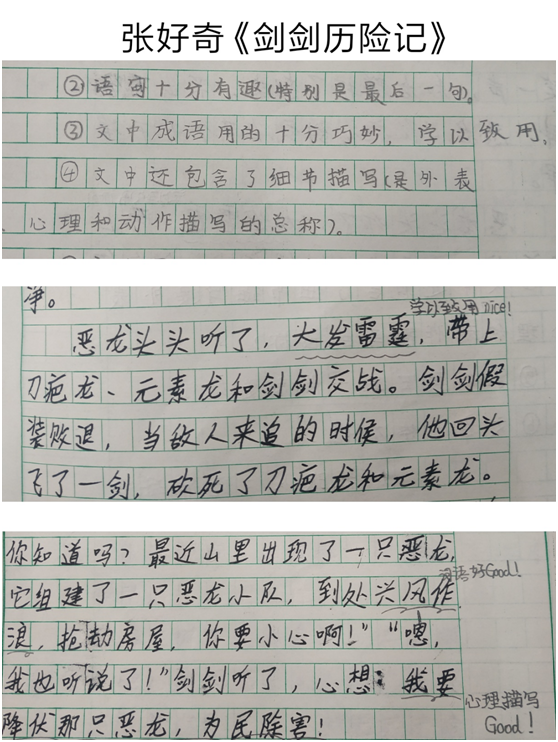 张好奇《剑剑历险记》
②语言十分有趣(特别是最后一句)。
③文中成语用的十分巧妙，学以致用。
④文中还包含了细节描写(是外表
心理和动作描写的总称)。
净。
学以致用 nice!
恶龙头头听了，大发雷霆，带上
刀疤龙、元素龙和剑剑交战。剑剑假
装败退，当敌人来追的时候，他回头
飞了一剑，砍死了刀疤龙和元素龙。
你知道吗？最近山里出现了一只恶龙，
词语好Good!
它组建了一只恶龙小队，到处兴风作
浪，抢劫房屋，你要小心啊！”“嗯，
我也听说了！”剑剑听了，心想：我要
心理描写
降伏那只恶龙，为民除害！
Good!